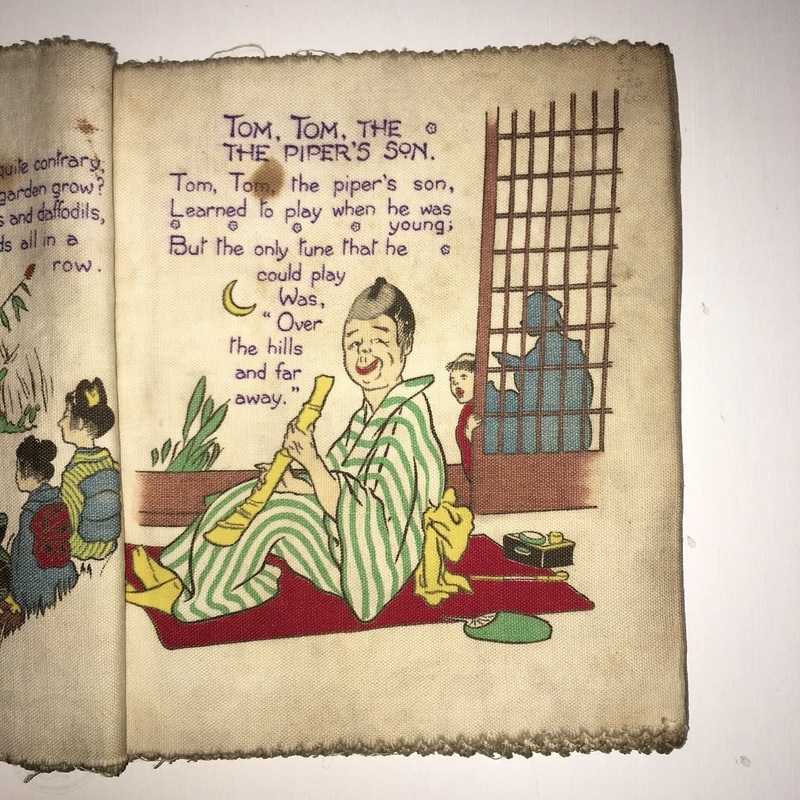 quite contrary,
garden grow?
s and daffodils,
ds all in a
row.
TOM, TOM, THE
THE PIPER'S SON.
Tom, Tom, the piper's son,
Learned to play when he was
young;
But the only tune that he
could play
Was,
"Over
the hills
and far
away."